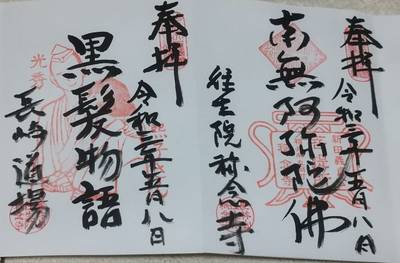 奉拝
令和三年五月八日
南無阿弥陀佛
往生院 称念寺
奉拝
令和三年五月八日
黒髪物語
光秀
長崎道場